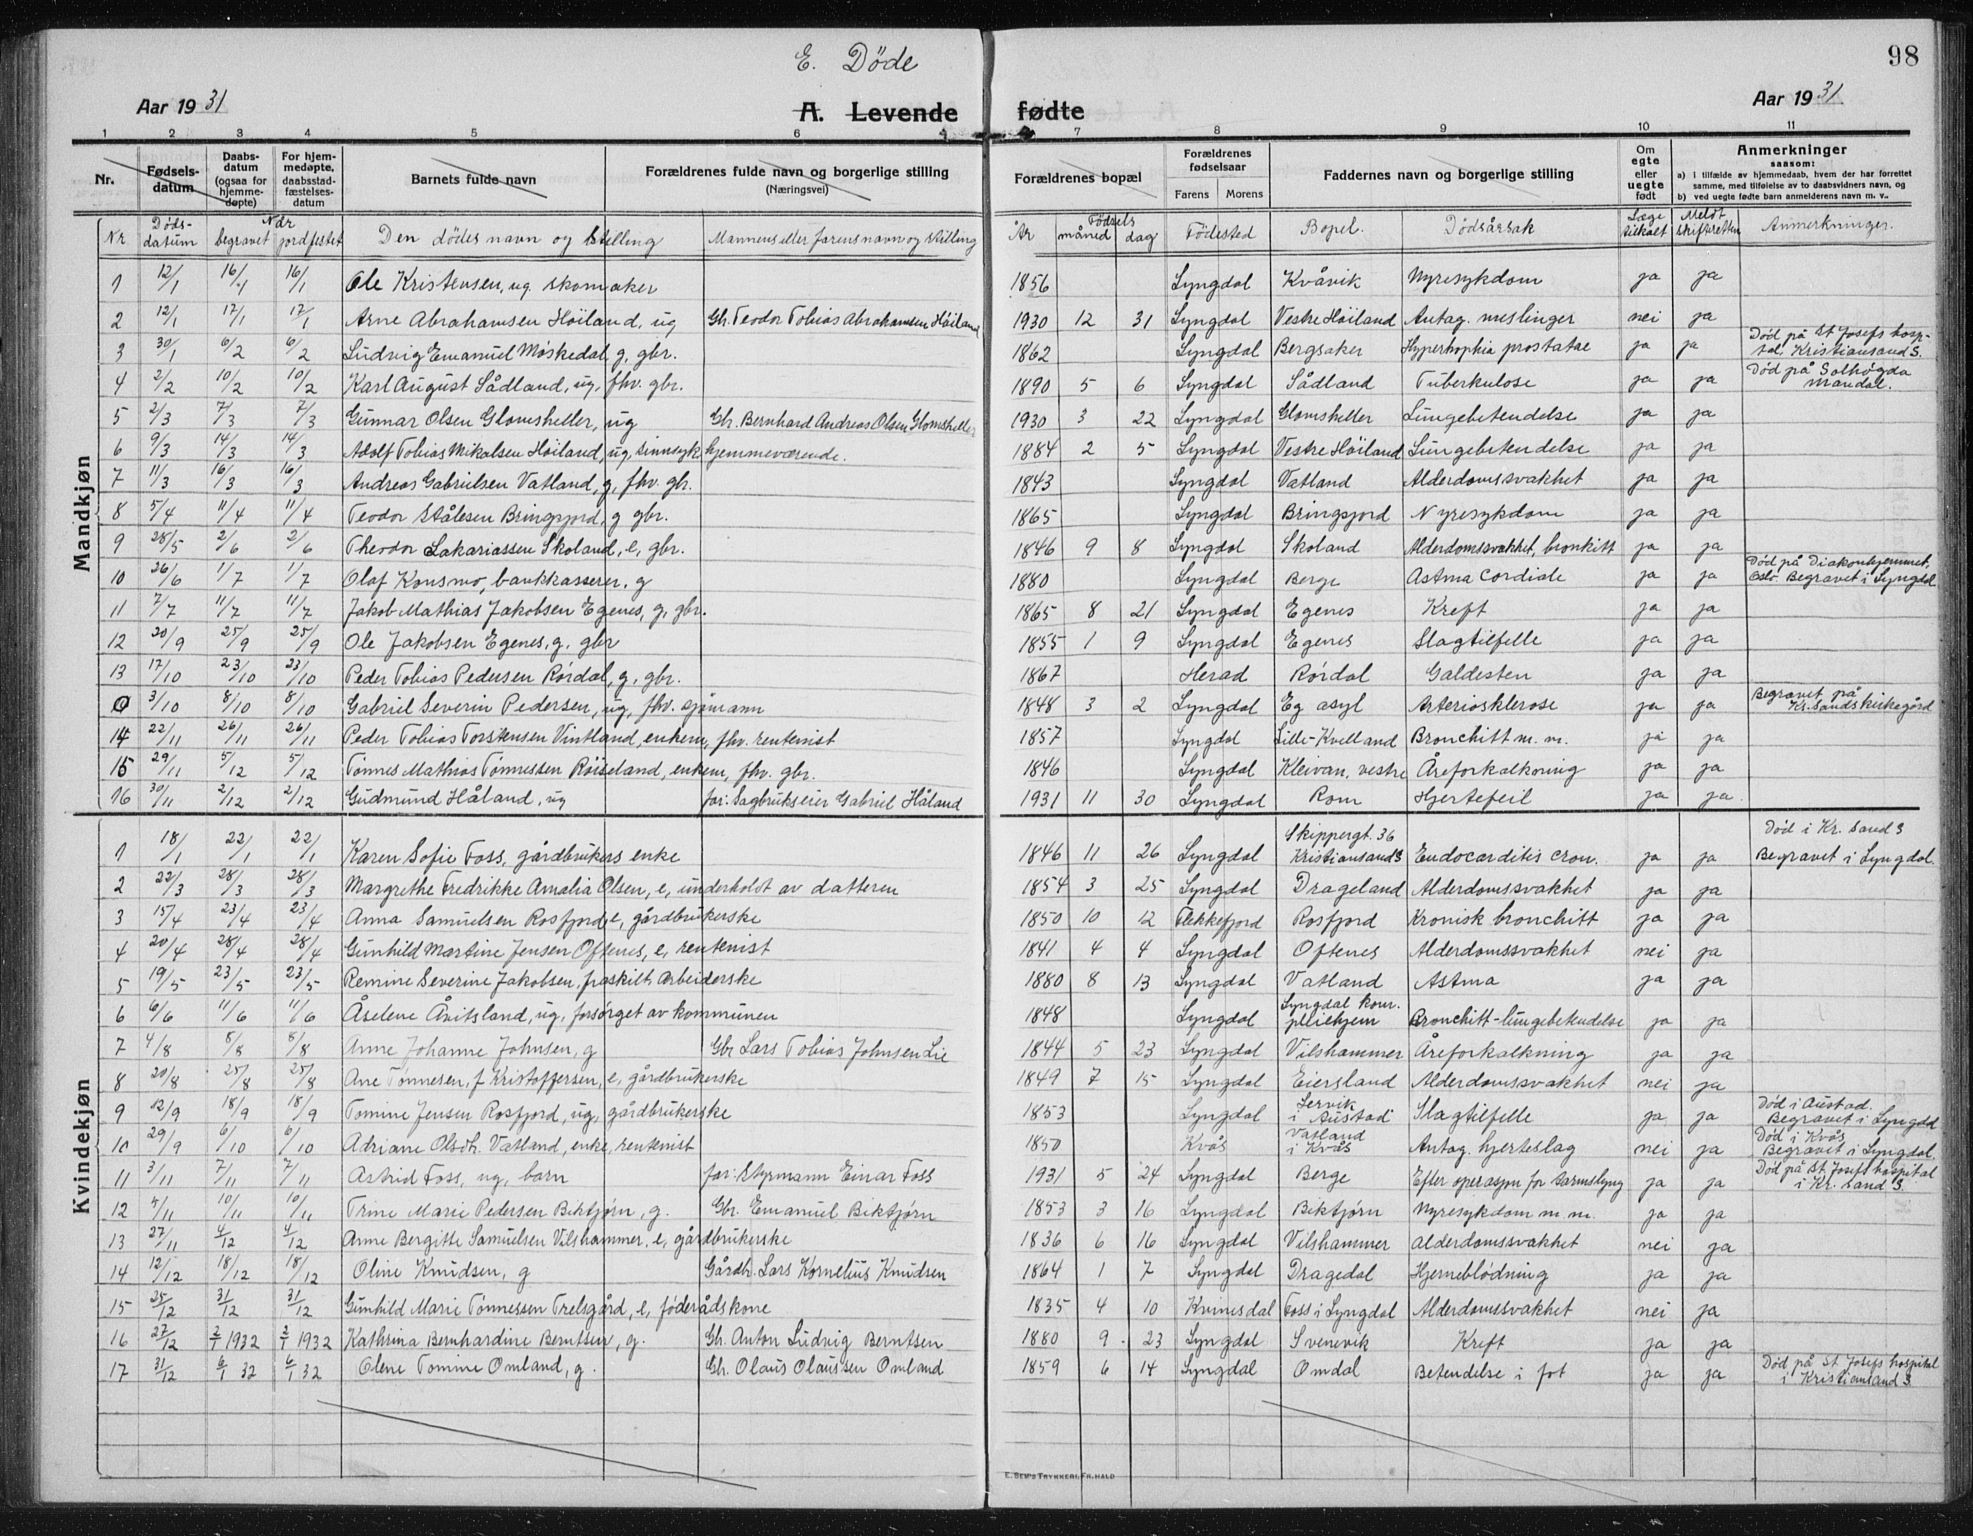 E. Døde
98
Aar 1931 A. Levende fødte Aar 1931
1 2 3 4 5 6 7 8 9 10 11
Nr. Fødsels-datum Daabs-datum (ogsaa for hjemme-døpte) For hjem-medøpte, daabsstad-fæstelses-datum Barnets fulde navn Forældrenes fulde navn og borgerlige stilling (Næringsvei) Forældrenes bopæl Forældrenes fødselsaar Farens Morens Faddernes navn og borgerlige stilling Om egte eller uegte født Anmerkninger saasom: a) i tilfælde av hjemmedaab, hvem der har forrettet samme, med tilføielse av to daabsvidners navn, og b) ved uegte fødte barn anmelderens navn m. v..
Nr Døds-datum Når begravet jordfestet Den dødes navn og stilling Mannens eller farens navn og stilling År Fødsels måned dag Fødested Bopel. Dødsårsak Læge tilkalt Meldt skifteretten Anmerkninger.
Mandkjøn
1 12/1 16/1 16/1 Ole Kristensen, ug. skomaker 1856 Lyngdal Kvåvik Nyresykdom ja ja
2 12/1 17/1 17/1 Arne Abrahamsen Höiland, ug Gbr. Teodor Tobias Abrahamsen Höiland 1930 12 31 Lyngdal Vestre Höiland Antag. meslinger nei ja
3 30/1 6/2 6/2 Ludvig Emanuel Møskedal, g, gbr. 1862 Lyngdal Bergsaker Hyperthophia prostatae ja ja Död på St Josefs hosp-tal, Kristiansand S.
4 2/2 10/2 10/2 Karl August Sådland, ug, fhv. gbr. 1890 5 6 Lyngdal Sådland Tuberkulose ja ja Död på Solhøgda Mandal.
5 2/3 7/3 7/3 Gunnar Olsen Glomsheller, ug Gbr. Bernhard Andreas Olsen Glomsheller 1930 3 22 Lyngdal Glomsheller Lungebetendelse ja ja
6 9/3 14/3 14/3 Adolf Tobias Mikalsen Höiland, ug, sinnsyk hjemmeværende. 1884 2 5 Lyngdal Vestre Höiland Lungebetendelse ja ja
7 11/3 16/3 16/3 Andreas Gabrielsen Vatland, g, fhv. gbr. 1843 Lyngdal Vatland Alderdomssvakhet ja ja
8 5/4 11/4 11/4 Teodor Stålesen Bringsjord, g gbr. 1865 Lyngdal Bringsjord Nyresykdom ja ja
9 28/5 2/6 2/6 Theodor Sakariassen Skoland, e, gbr. 1846 9 8 Lyngdal Skoland Alderdomssvakhet, bronkitt ja ja
10 26/6 1/7 1/7 Olaf Konsmo, bankkasserer, g 1880 Lyngdal Berge Astma Cordiale ja ja Död på Diakonhjemmet, Oslo. Begravet i Lyngdal
11 7/7 11/7 11/7 Jakob Mathias Jakobsen Egenes, g, gbr. 1865 8 21 Lyngdal Egenes Kreft ja ja
12 20/9 25/9 25/9 Ole Jakobsen Egenes, g, gbr 1855 1 9 Lyngdal Egenes Slagtilfelle ja ja
13 17/10 23/10 23/10 Peder Tobias Pedersen Rördal, g, gbr. 1867 Herad Rördal Galdesten ja ja
0 3/10 8/10 8/10 Gabriel Severin Pedersen, ug, fhv. sjømann 1848 3 2 Lyngdal Eg asyl Arteriosklerose ja ja Begravet på Kr.Sands kirkegård
14 22/11 26/11 26/11 Peder Tobias Torstensen Vintland, enkem, fhv. rentenist 1857 Lyngdal Lille-Kvelland Bronchitt m. m. ja ja
15 29/11 5/12 5/12 Tönnes Mathias Tönnessen Röiseland, enkem, fhv. gbr. 1846 Lyngdal Kleivan, vestre Åreforkalkning ja ja
16 30/11 2/12 2/12 Gudmund Håland, ug far: Sagbrukseier Gabriel Håland 1931 11 30 Lyngdal Rom Hjertefeil ja ja
Kvindekjøn
1 18/1 22/1 22/1 Karen Sofie Foss, gårdbrukers enke 1846 11 26 Lyngdal Skippergt. 36 Kristiansand S Endocarditis cron. ja ja Död i Kr. Sand S Begravet i Lyngdal
2 22/3 28/3 28/3 Margrethe Fredrikke Amalia Olsen, e, underholdt av datteren 1854 3 25 Lyngdal Drageland Alderdomssvakhet ja ja
3 15/4 23/4 23/4 Anna Samuelsen Rosfjord, e, gårdbrukerske 1850 10 12 Flekkefjord Rosfjord Kronisk bronchitt ja ja
4 20/4 28/4 28/4 Gunhild Martine Jensen Oftenes, e, rentenist 1841 4 4 Lyngdal Oftenes Alderdomssvakhet nei ja
5 19/5 23/5 23/5 Remine Severine Jakobsen, fraskilt, Arbeiderske 1880 8 13 Lyngdal Vatland Astma ja ja
6 6/6 11/6 11/6 Åselene Åvitsland, ug, forsørget av kommunen 1848 Lyngdal Lyngdal kom. pleiehjem Bronchitt-lungebetendelse ja ja
7 4/8 8/8 8/8 Anne Johanne Johnsen, g Gbr Lars Tobias Johnsen Lie 1844 5 23 Lyngdal Vilshammer Åreforkalkning ja ja
8 20/8 25/8 25/8 Ane Tønnesen, f Kristoffersen, e, gårdbrukerske 1849 7 15 Lyngdal Eiersland Alderdomssvakhet nei ja
9 12/9 18/9 18/9 Tomine Jensen Rosfjord, ug, gårdbrukerske 1853 Lyngdal Servik i Austad Slagtilfelle ja ja Död i Austad. Begravet i Lyngdal
10 29/9 6/10 6/10 Adriane Olsdtr. Vatland, enke, rentenist 1850 Kvås Vatland i Kvås Antag. hjerteslag nei ja Död i Kvås Begravet i Lyngdal.
11 3/11 7/11 7/11 Astrid Foss, ug, barn far: Styrmann Einar Foss 1931 5 24 Lyngdal Berge Efter operasjon for tarmslyng ja ja Död på St. Josefs hospital i Kr. Sand S.
12 5/11 10/11 10/11 Trine Marie Pedersen Biktjørn, g. Gbr. Emanuel Biktjørn 1853 3 16 Lyngdal Biktjørn Nyresykdom m.m. ja ja
13 27/11 4/12 4/12 Anne Bergitte Samuelsen Vilshammer, e, gårdbrukerske 1836 6 16 Lyngdal Vilshammer alderdomssvakhet nei ja
14 12/12 18/12 18/12 Oline Knudsen, g Gårdbr. Lars Kornelius Knudsen 1864 1 7 Lyngdal Dragedal Hjerneblödning ja ja
15 25/12 31/12 31/12 Gunhild Marie Tönnessen Trelsgård, e, föderådskone 1835 4 10 Kvinesdal Foss i Lyngdal Alderdomssvakhet nei ja
16 27/12 2/1 1932 2/1 1932 Kathrina Bernhardine Berntsen, g. Gbr. Anton Ludvig Berntsen 1880 9 23 Lyngdal Svenevik Kreft ja ja
17 31/12 6/1 32 6/1 32 Olene Tomine Omland, g. Gbr. Olaus Olaussen Omland 1859 6 14 Lyngdal Omdal Betendelse i fot ja ja Død på St Josefs hospital i Kristiansand S.
E. SEM'S TRYKKERI, FR. HALD